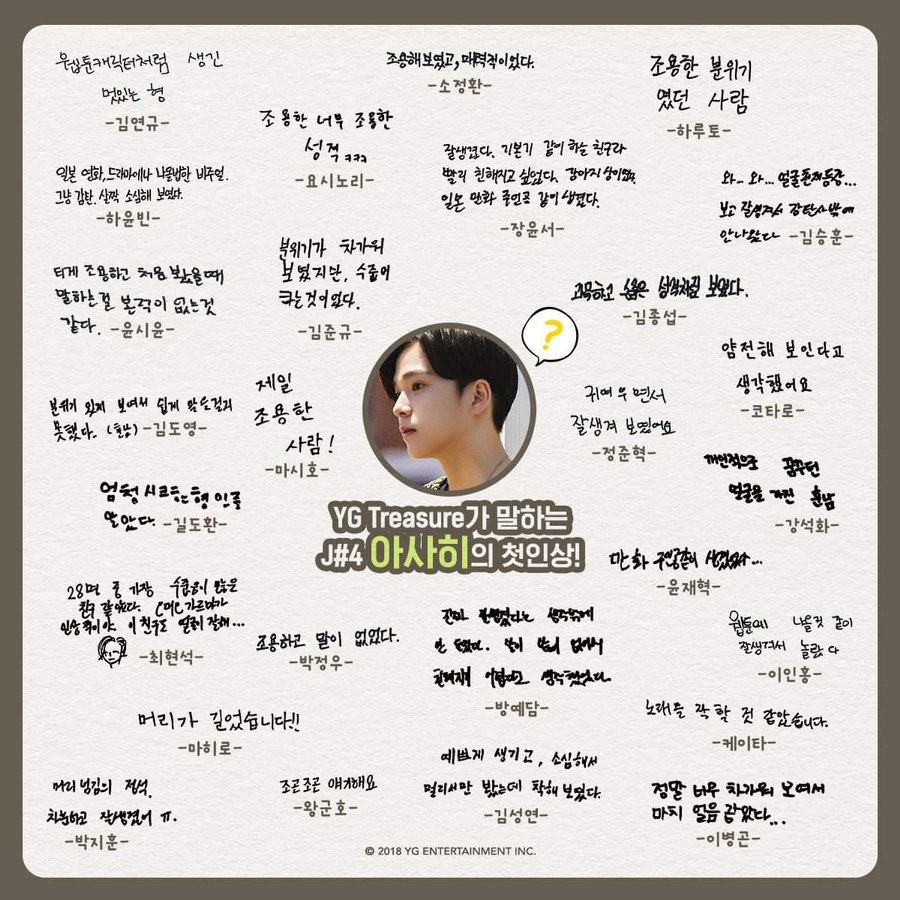 웹툰캐릭터처럼 생긴
멋있는 형
-김연규-
조용해 보였고, 매력적이었다.
-소정환-
조용한 분위기
였던 사람
-하루토-
조용한 너무 조용한
성격 ㅋㅋㅋ
-요시노리-
일본 영화, 드라마에나 나올법한 비주얼.
그냥 감탄. 살짝 소심해 보였다.
-하윤빈-
잘생겼다. 기본기 같이 하는 친구라
빨리 친해지고 싶었다. 강아지 상이었고
일본 만화 주인공 같이 생겼다.
-장윤서-
와.. 와... 얼굴 존재등장...
보고 잘생겨서 감탄사밖에
안나왔다 -김승훈-
되게 조용하고 처음 봤을때
말하는걸 본적이 없는것
같다. -윤시윤-
분위기가 차가워
보였지만, 수줍어
하는것이었다.
-김준규-
과묵하고 숨은 성격처럼 보였다.
-김종섭-
얌전해 보인다고
생각했어요
-코타로-
분위기 있게 보여서 쉽게 말을걸지
못했다. -김도영-
제일
조용한
사람!
-마시호-
귀여우면서
잘생겨 보였어요
-정준혁-
엄청 시크한 형인줄
알았다. -길도환-
개인적으로 꿈꾸던
얼굴을 가진 훈남
-강석화-
YG Treasure가 말하는
J#4 아사히의 첫인상!
만화 주인공같이 생겼다...
-윤재혁-
28명 중 가장 수줍음이 많은
친구 같았다. C머C가르마가
인상적이야. 이 친구도 얼굴이 잘해...
-최현석-
조용하고 말이 없었다.
-박정우-
진짜 잘생겼다는 생각밖에
안 들었다. 말이 많이 없어서
친해지기 어렵다고 생각했었다.
-방예담-
웹툰에 나올것 같이
잘생겨서 놀랐다
-이인홍-
머리가 길었습니다!!
-마히로-
노래를 잘 할 것 같았습니다.
-케이타-
머리 넘김의 정석.
차분하고 잘생겼어 ㅠ.
-박지훈-
조곤조곤 얘기해요
-왕군호-
예쁘게 생기고, 소심해서
멀리서만 봤는데 착해 보였다.
-김성연-
정말 너무 차가워 보여서
마치 얼음 같았다...
-이병곤-
© 2018 YG ENTERTAINMENT INC.